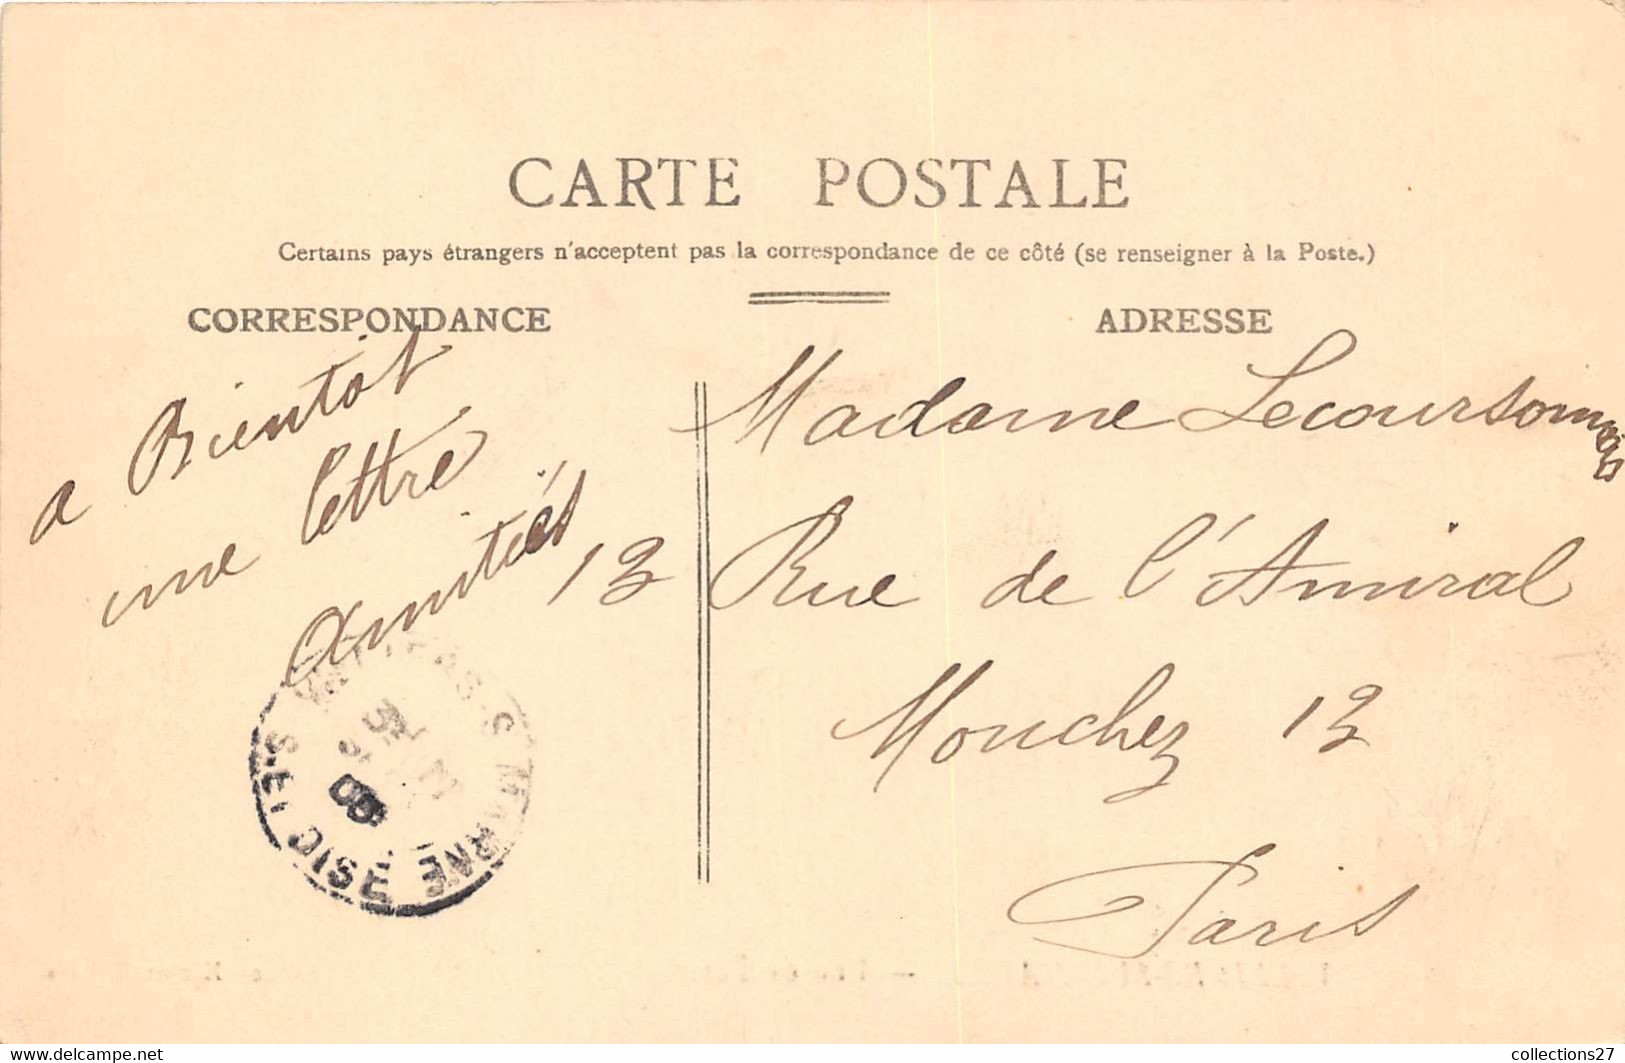 CARTE POSTALE
Certains pays étrangers n'acceptent pas la correspondance de ce côté (se renseigner à la Poste.)
CORRESPONDANCE
a Bientôt
une lettre
Amitiés
ADRESSE
Madame
13 Rue de l'Amiral
Mouchez 13
Paris
S. MARNE
S. ET OISE
09
www.delcampe.net
collections27